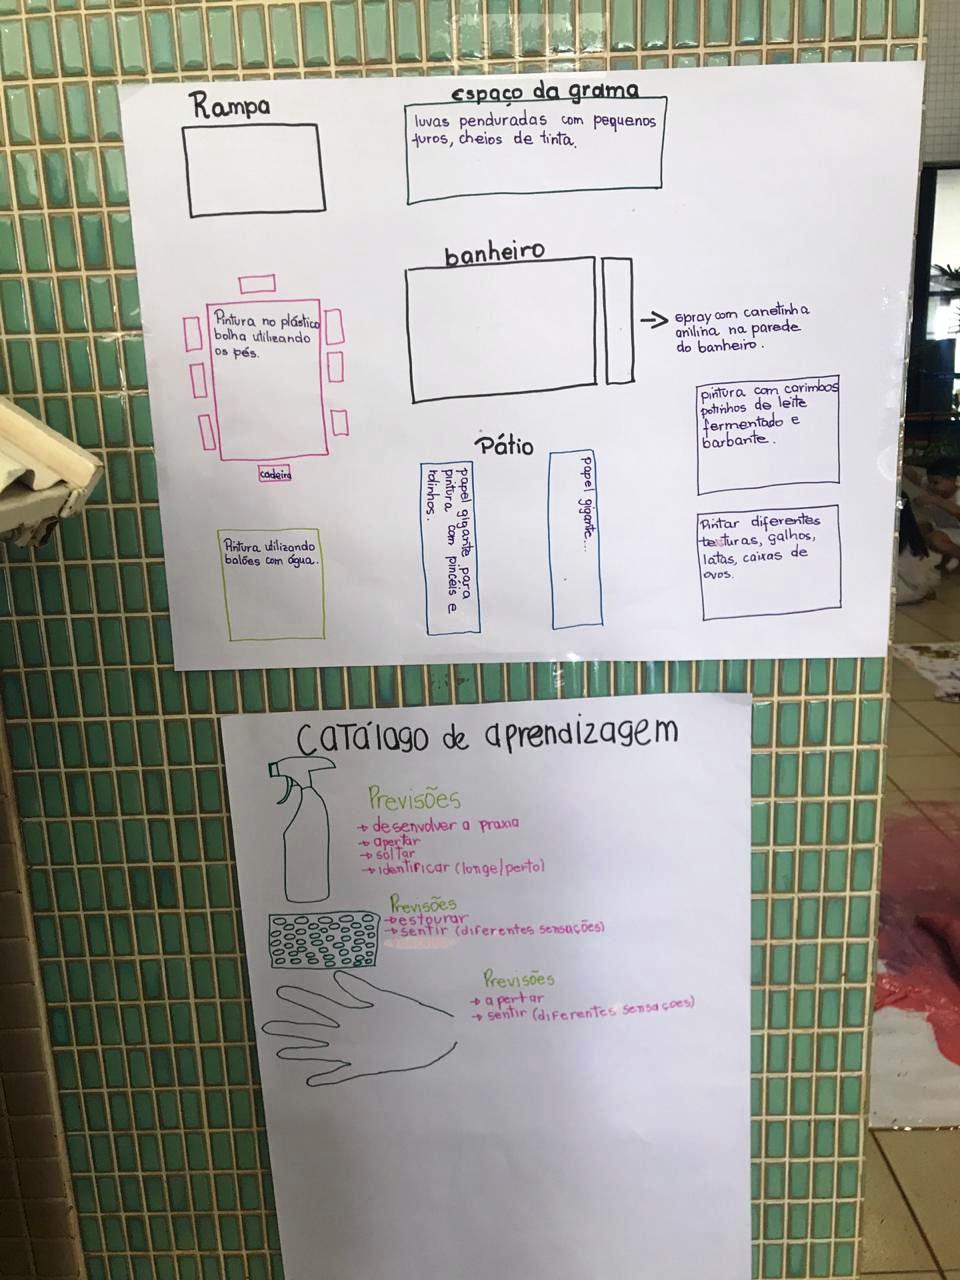 Rampa
espaço da grama
luvas penduradas com pequenos
furos, cheios de tinta.
banheiro
spray com canetinha
anilina na parede
do banheiro.
Pintura no plástico
bolha utilizando
os pés.
cadeira
Pátio
papel gigante para
pintura com pincéis e
rolinhos.
papel gigante...
pintura com carimbos
potinhos de leite
fermentado e
barbante.
Pintura utilizando
balões com água.
Pintar diferentes
texturas, galhos,
latas, caixas de
ovos.
Catálago de aprendizagem
Previsões
→ desenvolver a praxia
→ apertar
→ soltar
→ identificar (longe/perto)
Previsões
→ estourar
→ sentir (diferentes sensações)
Previsões
→ apertar
→ sentir (diferentes sensações)